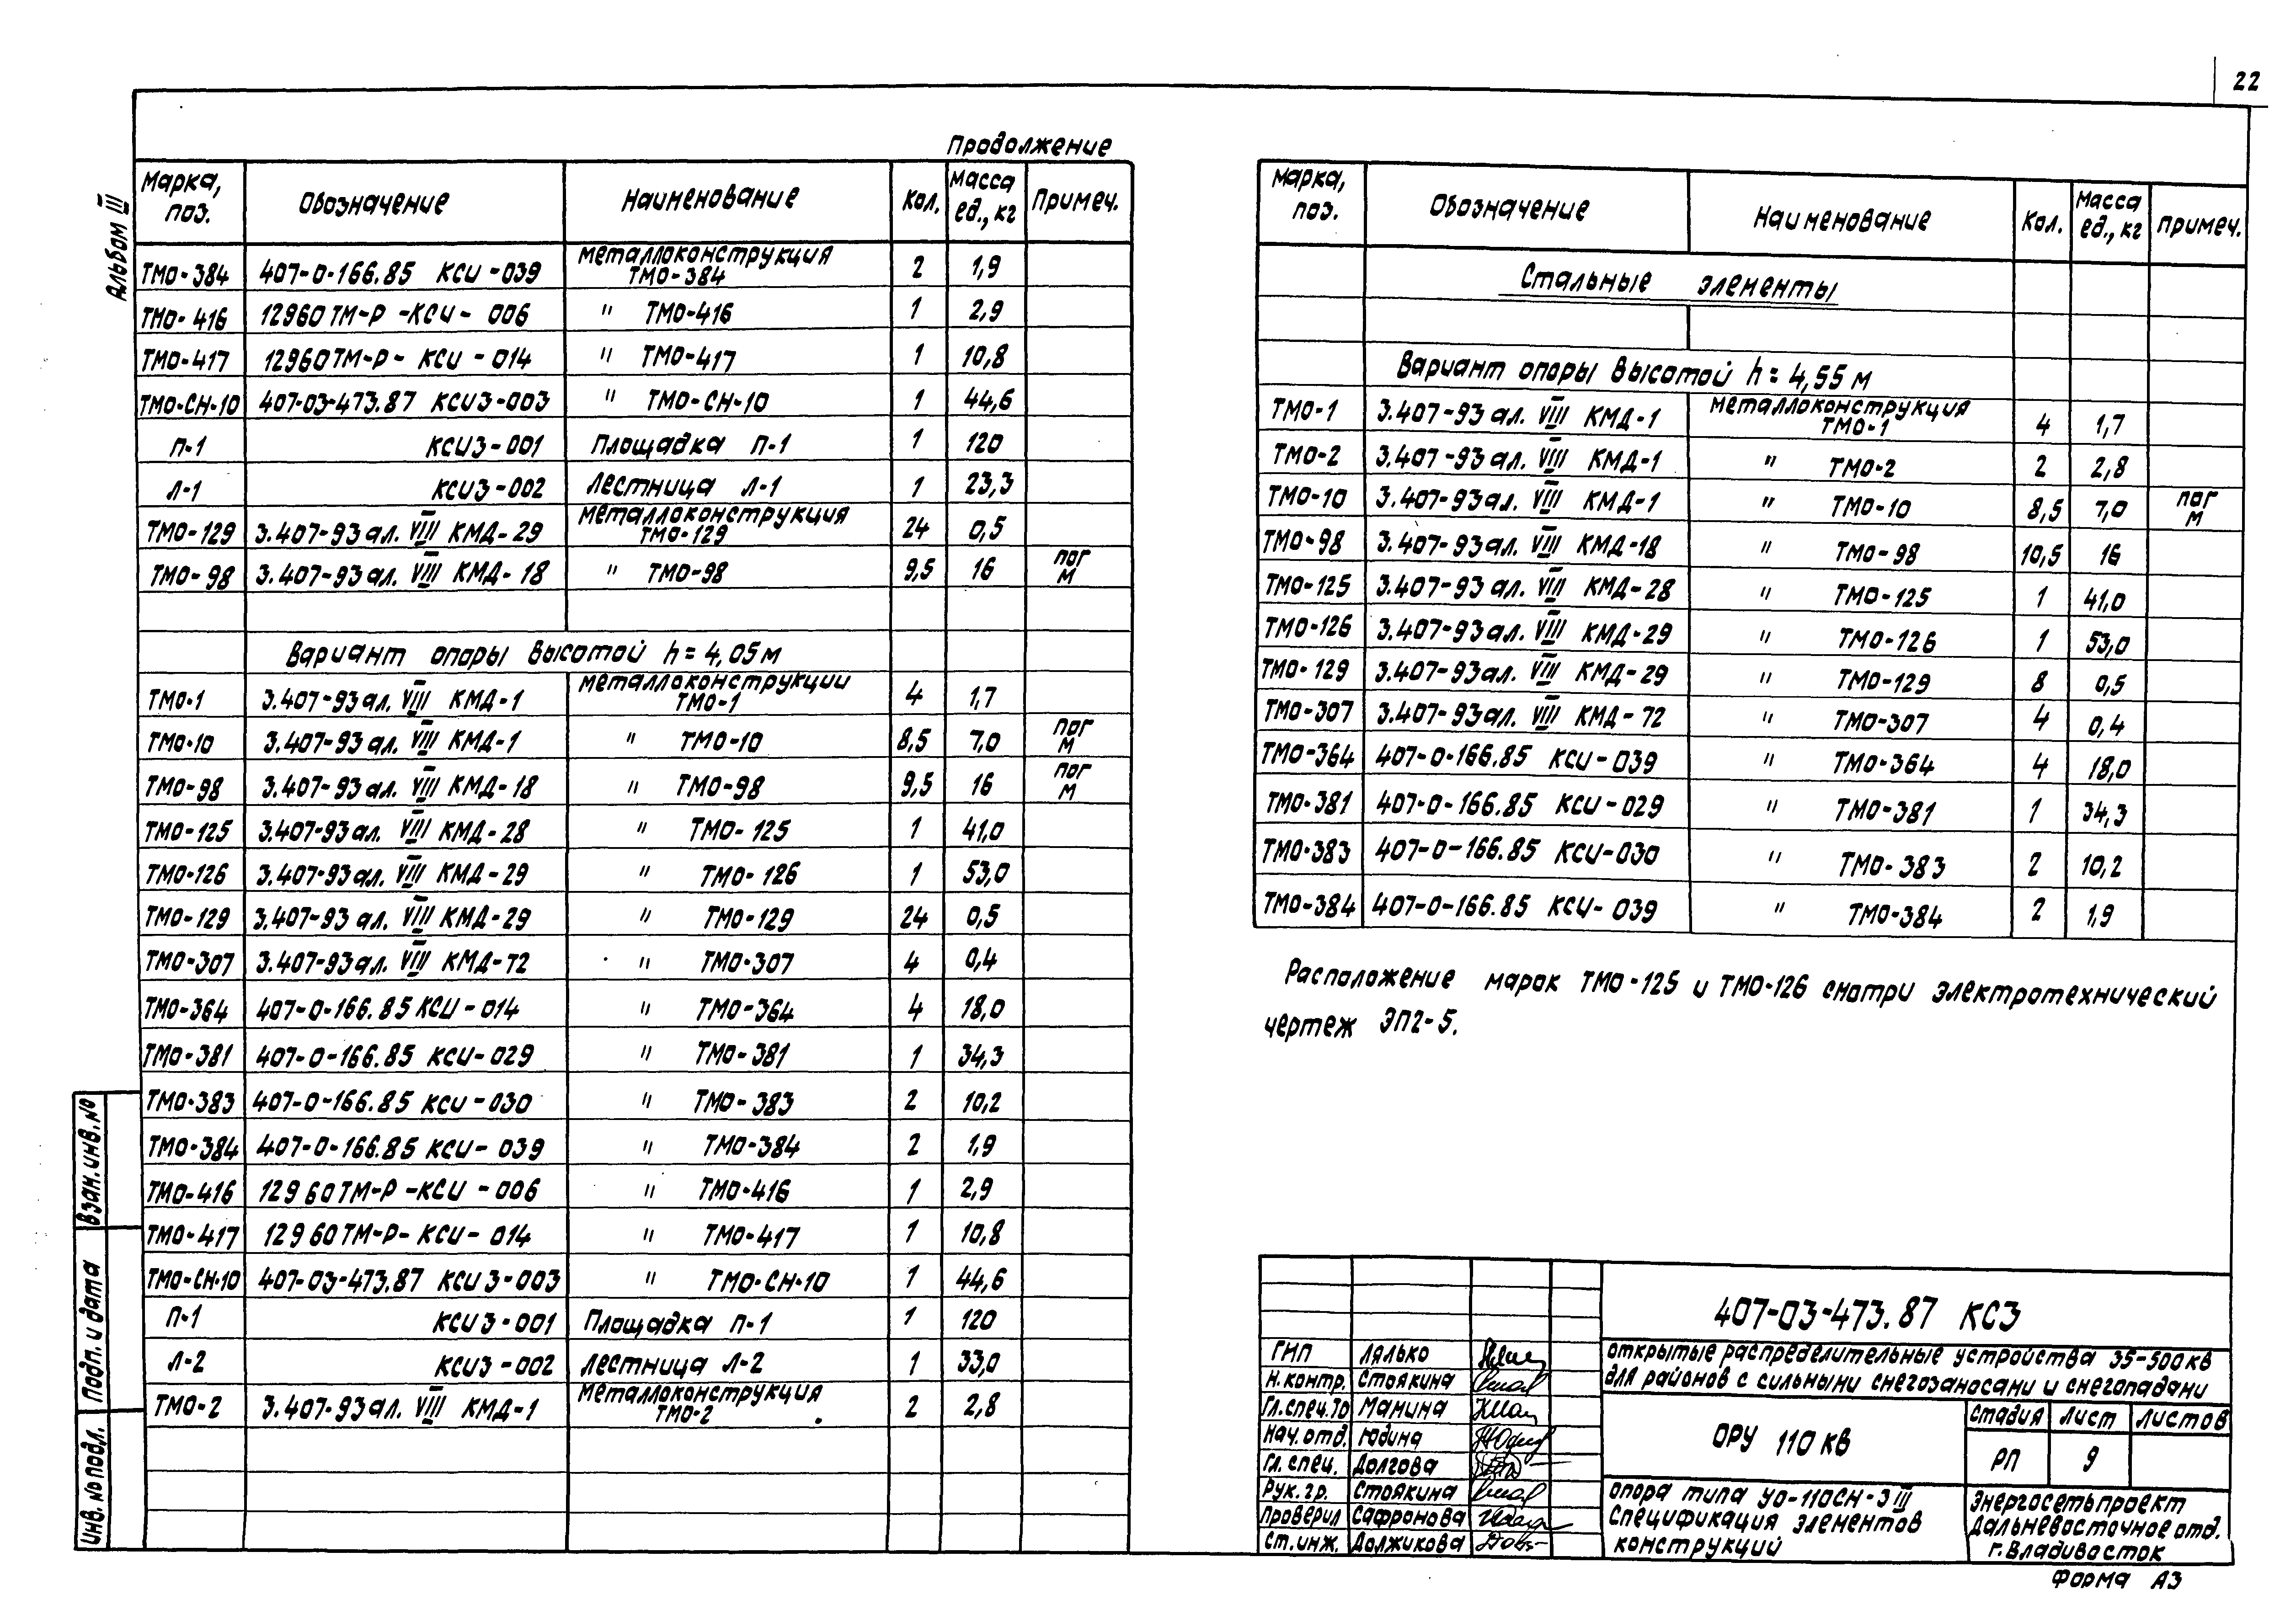 22
Альбом III
Продолжение
Марка, поз. Обозначение Наименование Кол. Масса ед., кг Примеч.
ТМО-384 407-0-166.85 КСИ-039 Металлоконструкция ТМО-384 2 1,9
ТМО-416 12960ТМ-Р-КСИ-006 " ТМО-416 1 2,9
ТМО-417 12960ТМ-Р-КСИ-014 " ТМО-417 1 10,8
ТМО-СН-10 407-03-473.87 КСИ3-003 " ТМО-СН-10 1 44,6
П-1 КСИ3-001 Площадка П-1 1 120
Л-1 КСИ3-002 Лестница Л-1 1 23,3
ТМО-129 3.407-93 ал. VIII КМД-29 Металлоконструкция ТМО-129 24 0,5
ТМО-98 3.407-93 ал. VIII КМД-18 " ТМО-98 9,5 16 пог м
Вариант опоры высотой h=4,05м
ТМО-1 3.407-93 ал. VIII КМД-1 Металлоконструкции ТМО-1 4 1,7
ТМО-10 3.407-93 ал. VIII КМД-1 " ТМО-10 8,5 7,0 пог м
ТМО-98 3.407-93 ал. VIII КМД-18 " ТМО-98 9,5 16 пог м
ТМО-125 3.407-93 ал. VIII КМД-28 " ТМО-125 1 41,0
ТМО-126 3.407-93 ал. VIII КМД-29 " ТМО-126 1 53,0
ТМО-129 3.407-93 ал. VIII КМД-29 " ТМО-129 24 0,5
ТМО-307 3.407-93 ал. VIII КМД-72 " ТМО-307 4 0,4
ТМО-364 407-0-166.85 КСИ-014 " ТМО-364 4 18,0
ТМО-381 407-0-166.85 КСИ-029 " ТМО-381 1 34,3
ТМО-383 407-0-166.85 КСИ-030 " ТМО-383 2 10,2
ТМО-384 407-0-166.85 КСИ-039 " ТМО-384 2 1,9
ТМО-416 12960ТМ-Р-КСИ-006 " ТМО-416 1 2,9
ТМО-417 12960ТМ-Р-КСИ-014 " ТМО-417 1 10,8
ТМО-СН-10 407-03-473.87 КСИ3-003 " ТМО-СН-10 1 44,6
П-1 КСИ3-001 Площадка П-1 1 120
Л-2 КСИ3-002 Лестница Л-2 1 33,0
ТМО-2 3.407-93 ал. VIII КМД-1 Металлоконструкция ТМО-2 2 2,8
Марка, поз. Обозначение Наименование Кол. Масса ед., кг Примеч.
Стальные элементы
Вариант опоры высотой h=4,55м
ТМО-1 3.407-93 ал. VIII КМД-1 Металлоконструкция ТМО-1 4 1,7
ТМО-2 3.407-93 ал. VIII КМД-1 " ТМО-2 2 2,8
ТМО-10 3.407-93 ал. VIII КМД-1 " ТМО-10 8,5 7,0 пог м
ТМО-98 3.407-93 ал. VIII КМД-18 " ТМО-98 10,5 16
ТМО-125 3.407-93 ал. VIII КМД-28 " ТМО-125 1 41,0
ТМО-126 3.407-93 ал. VIII КМД-29 " ТМО-126 1 53,0
ТМО-129 3.407-93 ал. VIII КМД-29 " ТМО-129 8 0,5
ТМО-307 3.407-93 ал. VIII КМД-72 " ТМО-307 4 0,4
ТМО-364 407-0-166.85 КСИ-039 " ТМО-364 4 18,0
ТМО-381 407-0-166.85 КСИ-029 " ТМО-381 1 34,3
ТМО-383 407-0-166.85 КСИ-030 " ТМО-383 2 10,2
ТМО-384 407-0-166.85 КСИ-039 " ТМО-384 2 1,9
Расположение марок ТМО-125 и ТМО-126 смотри электротехнический
чертеж ЭП2-5.
Взам. инв. №
Подп. и дата
Инв. № подл.
407-03-473.87 КС3
ГИП Лялько
Н. контр. Стоякина
Гл. спец. ТО Мамина
Нач. отд. Юдина
Гл. спец. Долгова
Рук. гр. Стоякина
Проверил Сафронова
Ст. инж. Должикова
Открытые распределительные устройства 35-500кВ
для районов с сильными снегозаносами и снегопадами
ОРУ 110 кВ
Стадия Лист Листов
РП 9
Опора типа УО-110СН-3 III
Спецификация элементов
конструкций
Энергосетьпроект
Дальневосточное отд.
г. Владивосток
Форма А3